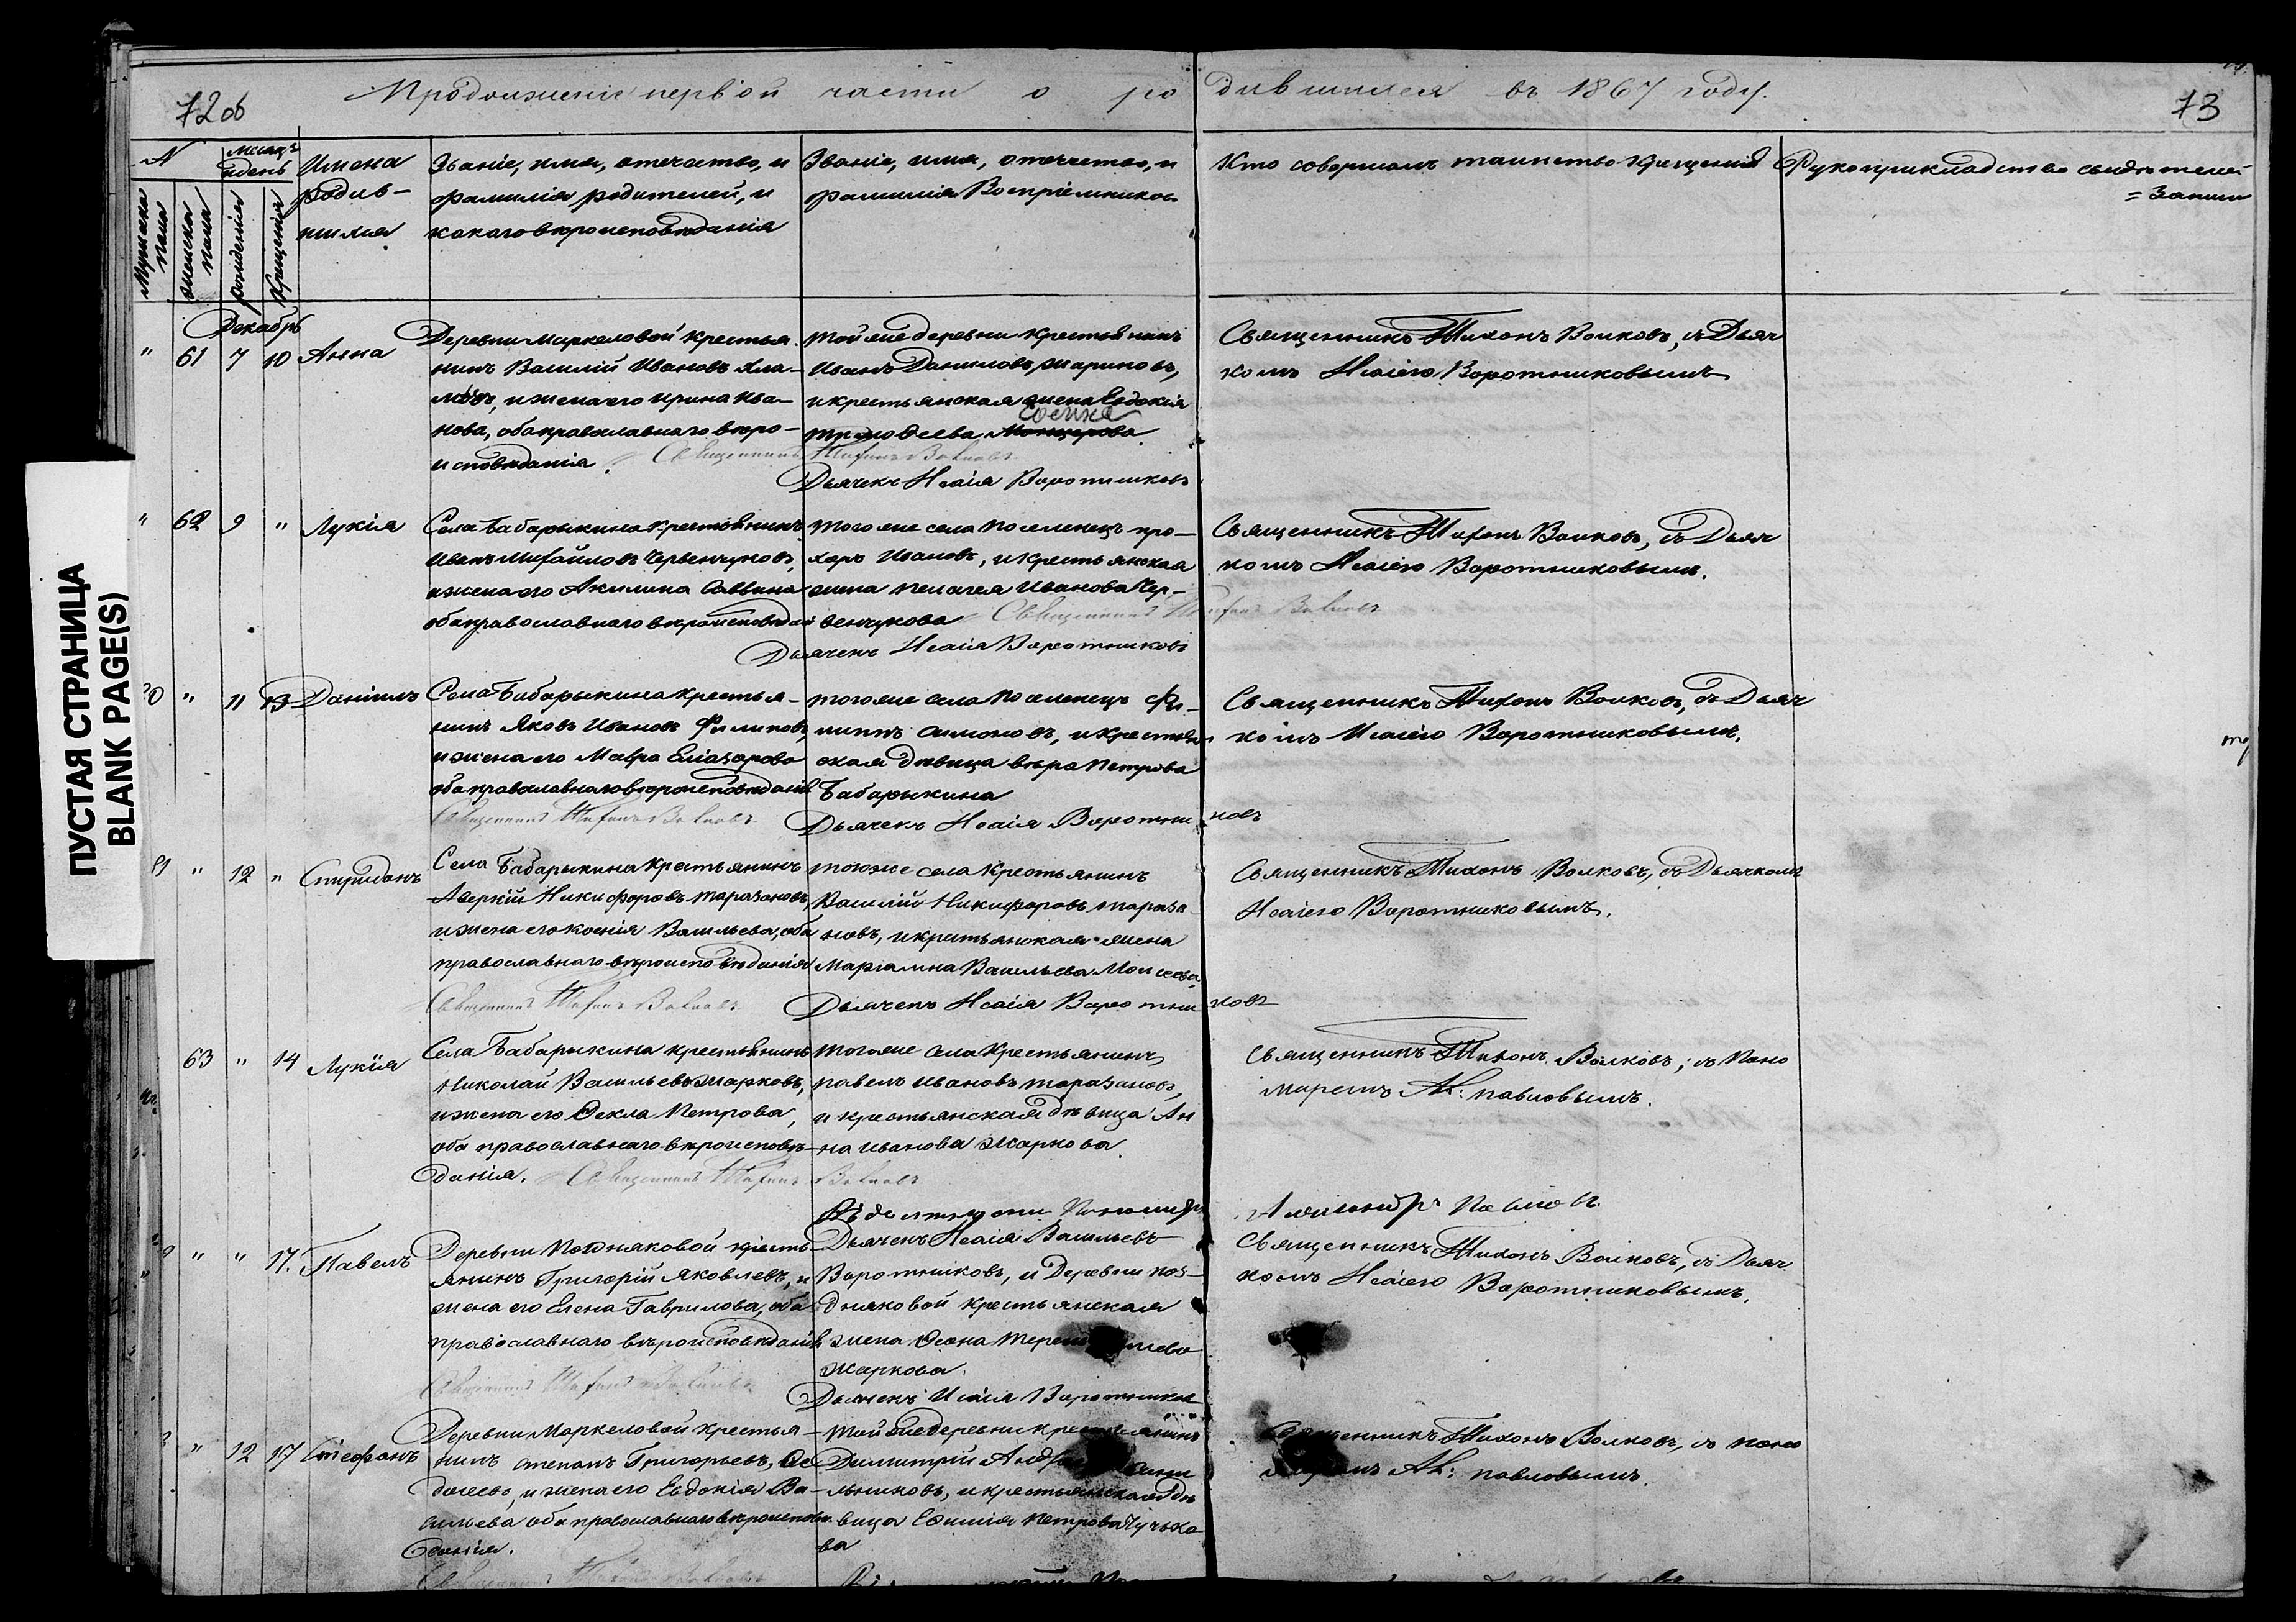 72 об
Продолженіе первой части о ро дившихся въ 1867 году.
73
ПУСТАЯ СТРАНИЦА
BLANK PAGE(S)
N
Мужеска пола
женска пола
месяцъ
день
рожденія
Крещенія
Имена
родив-
шихся
Званіе, имя, отчество, и
фамилія родителей, и
какаго вѣроисповѣданія
Званіе, имя, отчество, и
фамилія Воспріемниковъ
Кто совершалъ таинство крещенія
Рукоприкладство свидѣтелей
Декабрь
" 61 7 10 Анна
Деревни Маркеловой крестья-
нинъ Василій Ивановъ
и жена его Ирина Ива-
нова, оба православнаго вѣро-
исповѣданія
Священникъ Тихонъ Волковъ
Той же деревни крестьянинъ
Иванъ Даниловъ Жариновъ,
и крестьянская жена Евдокія
Тимофеева
Дьячекъ Исаія Воротниковъ
Священникъ Тихонъ Волковъ, съ Дьяч
комъ Исаіею Воротниковымъ
" 62 9 " Лукія
Села Бабарыкина крестьянинъ
Иванъ Михайловъ Червенчуковъ,
и жена его Акилина Саввина
оба православнаго вѣроисповѣдан
Того же села поселенецъ Про-
хоръ Ивановъ, и крестьянская
жена Пелагея Иванова Чер-
венчукова Священникъ Тихонъ Волковъ
Дьячекъ Исаія Воротниковъ
Священникъ Тихонъ Волковъ, съ Дьяч
комъ Исаіею Воротниковымъ.
" 11 13 Даніилъ
Села Бабарыкина крестья-
нинъ Яковъ Ивановъ Филиповъ,
и жена его Мавра Еліазарова
оба православнаго вѣроисповѣданія
Священникъ Тихонъ Волковъ
Того же села поселенецъ Фи-
липпъ Симоновъ, и крестьян
ская дѣвица Вѣра Петрова
Бабарыкина
Дьячекъ Исаія Воротни ковъ
Священникъ Тихонъ Волковъ, съ Дьяч
комъ Исаіею Воротниковымъ.
" 12 " Спиридонъ
Села Бабарыкина Крестьянинъ
Аверкій Никифоровъ Таразановъ,
и жена его Ксенія Васильева, оба
православнаго вѣроисповѣданія
Священникъ Тихонъ Волковъ
Того же села крестьянинъ
Василій Никифоровъ Тараза
новъ, и крестьянская жена
Маріамна Васильева Моисеева
Дьячекъ Исаія Воротни ковъ
Священникъ Тихонъ Волковъ, съ Дьячкомъ
Исаіею Воротниковымъ.
63 " 14 Лукія
Села Бабарыкина крестьянинъ
Николай Васильевъ Жарковъ,
и жена его Ѳекла Петрова,
оба православнаго вѣроисповѣ-
данія. Священникъ Тихонъ Волковъ
Того же села Крестьянинъ
Павелъ Ивановъ Таразановъ,
и крестьянская дѣвица Ан
на Иванова Жаркова
Священникъ Тихонъ Волковъ; съ Поно
маремъ Ал: Павловымъ.
Александръ Павловъ
" " 17. Павелъ
Деревни Поздняковой кресть-
янинъ Григорій Яковлевъ, и
жена его Елена Гаврилова, оба
православнаго вѣроисповѣданія
Священникъ Тихонъ Волковъ
Дьячекъ Исаія Васильевъ
Воротниковъ, и Деревни Поз-
дняковой крестьянская
жена
Жаркова
Дьячекъ Исаія Воротниковъ
Священникъ Тихонъ Волковъ, съ Дьяч
комъ Исаіею Воротниковымъ.
" 12 17 Стефанъ
Деревни Маркеловой крестья-
нинъ Степанъ Григорьевъ, Ѳе
досеевъ, и жена его Евдокія Ва-
сильева оба православнаго вѣроисповѣ
данія.
Священникъ Тихонъ Волковъ
Той же деревни крестьянинъ
Димитрій
льниковъ, и крестьянская дѣ
вица Евфимія Петрова Чучко
ва
Священникъ Тихонъ Волковъ, съ Поно
маремъ Ал: Павловымъ